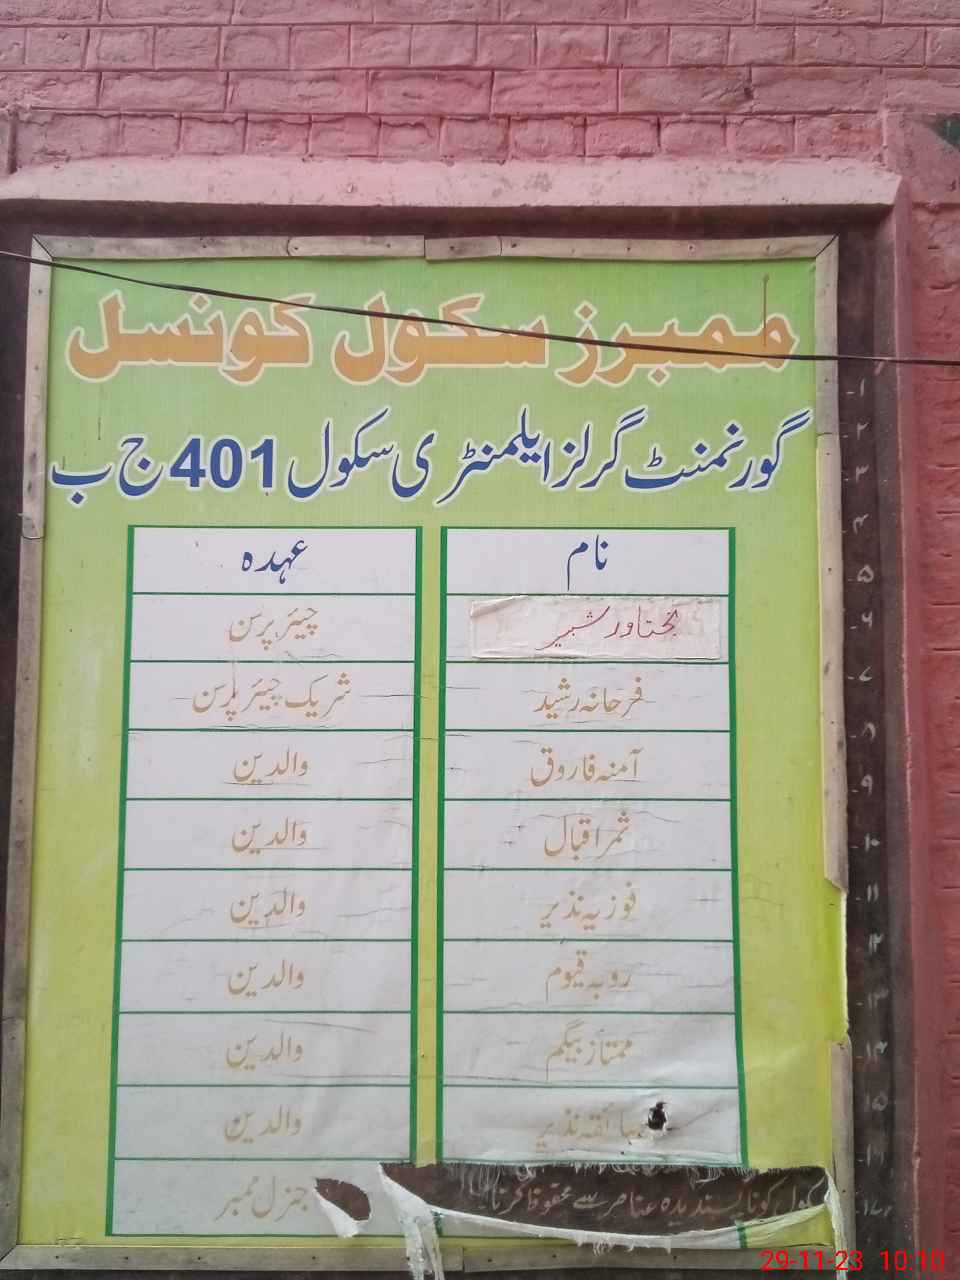 ممبرز سکول کونسل
گورنمنٹ گرلز ایلمنٹری سکول 401 ج ب
نام عہدہ
بختاور شبیر چیئر پرسن
فرحانہ رشید شریک چیئر پرسن
آمنہ فاروق والدین
ثمر اقبال والدین
فوزیہ نذیر والدین
روبہ قیوم والدین
ممتاز بیگم والدین
نذیر والدین
جنرل ممبر
سکول کو ناپسندیدہ عناصر سے محفوظ کرنا
-۱
-۲
-۳
-۴
-۵
-۶
-۷
-۸
-۹
-۱۰
-۱۱
-۱۲
-۱۳
-۱۴
-۱۵
-۱۷
29-11-23 10:10